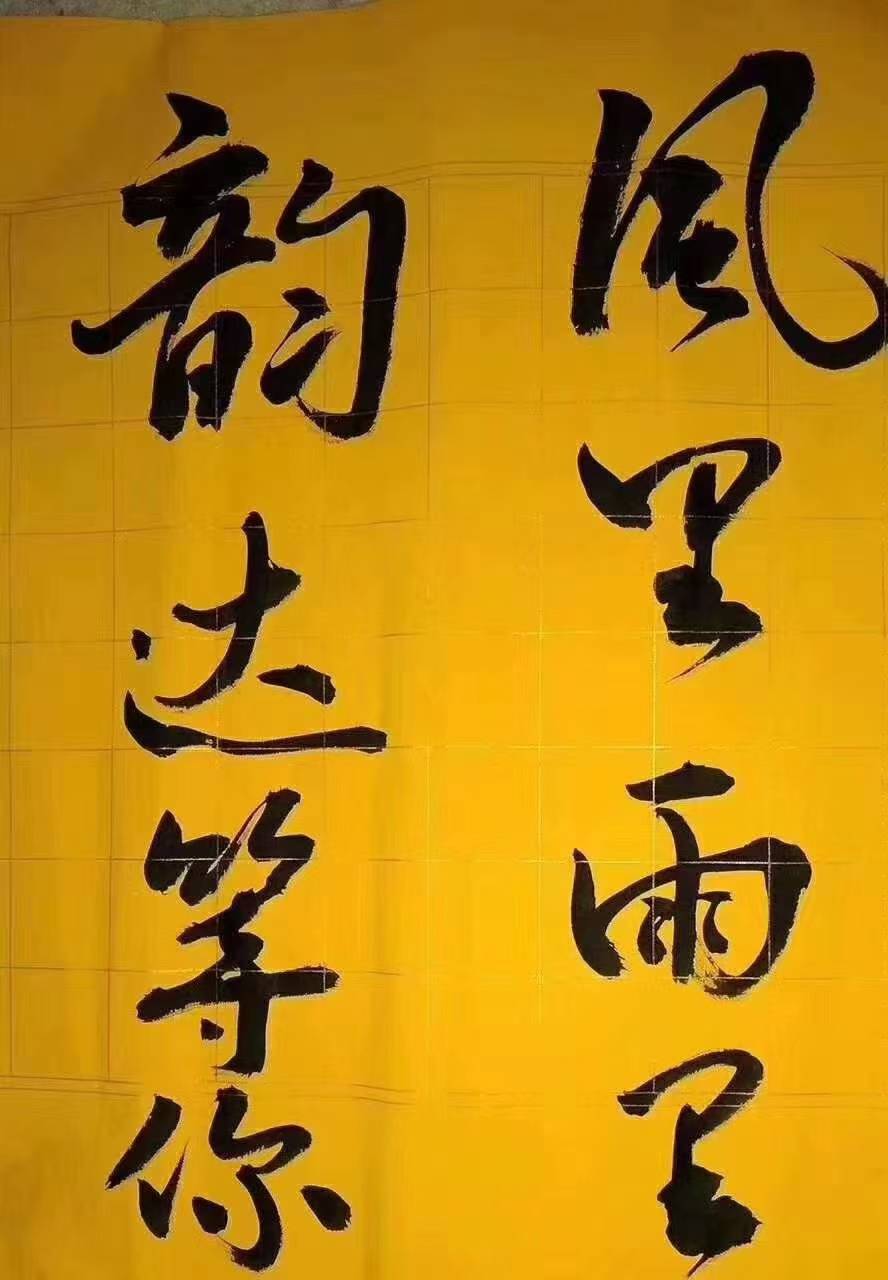 風里雨里
韵达等你